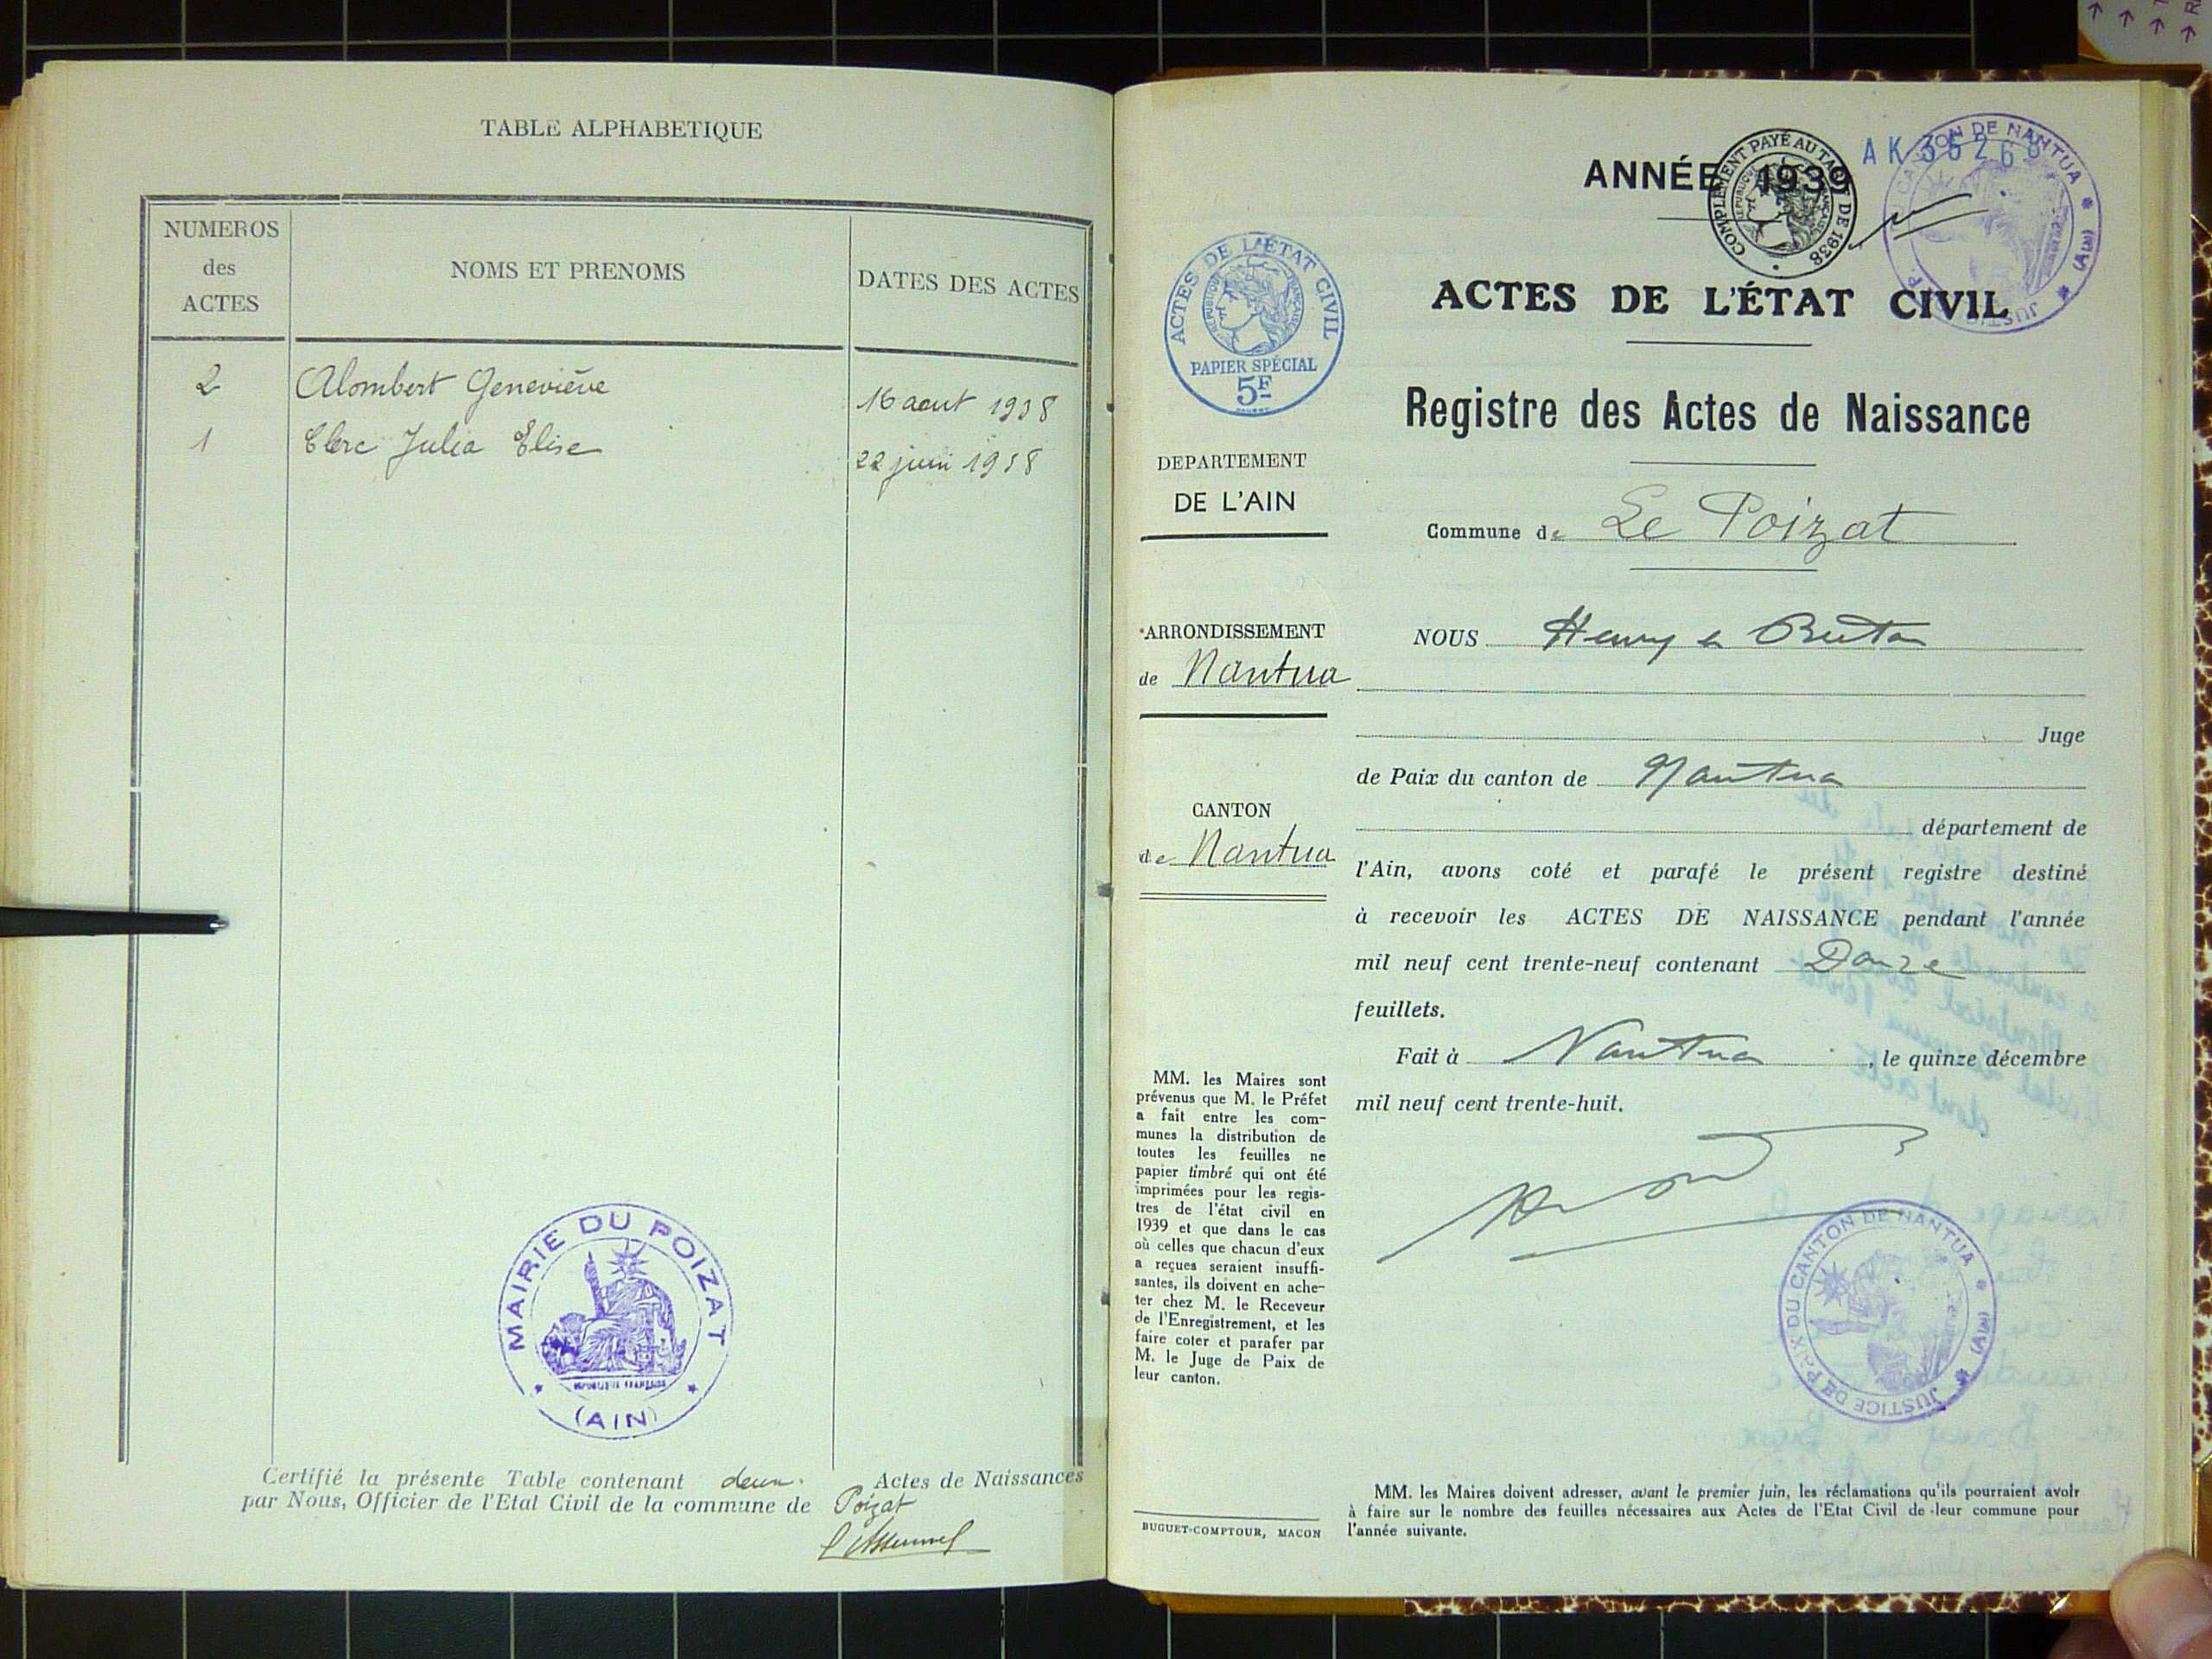 TABLE ALPHABETIQUE
NUMEROS
des
ACTES
NOMS ET PRENOMS
DATES DES ACTES
2 Alombert Geneviève 16 aout 1938
1 Clerc Julia Elise 22 juin 1938
MAIRIE DU POIZAT
REPUBLIQUE FRANÇAISE
(AIN)
Certifié la présente Table contenant deux Actes de Naissances
par Nous, Officier de l'Etat Civil de la commune de Poizat
ANNÉE 1939
COMPLÉMENT PAYÉ AU TARIF DE 1938
REPUBLIQUE FRANÇAISE
JUSTICE DE PAIX DU CANTON DE NANTUA (Ain)
ACTES DE L'ÉTAT CIVIL
REPUBLIQUE FRANÇAISE
PAPIER SPÉCIAL
5F
ACTES DE L'ÉTAT CIVIL
Registre des Actes de Naissance
DEPARTEMENT
DE L'AIN
Commune de Le Poizat
ARRONDISSEMENT
de Nantua
CANTON
de Nantua
NOUS Henry
Juge
de Paix du canton de Nantua
département de
l'Ain, avons coté et parafé le présent registre destiné
à recevoir les ACTES DE NAISSANCE pendant l'année
mil neuf cent trente-neuf contenant Douze
feuillets.
Fait à Nantua, le quinze décembre
mil neuf cent trente-huit.
MM. les Maires sont
prévenus que M. le Préfet
a fait entre les com-
munes la distribution de
toutes les feuilles ne
papier timbré qui ont été
imprimées pour les regis-
tres de l'état civil en
1939 et que dans le cas
où celles que chacun d'eux
a reçues seraient insuffi-
santes, ils doivent en ache-
ter chez M. le Receveur
de l'Enregistrement, et les
faire coter et parafer par
M. le Juge de Paix de
leur canton.
JUSTICE DE PAIX DU CANTON DE NANTUA (Ain)
BUGUET-COMPTOUR, MACON
MM. les Maires doivent adresser, avant le premier juin, les réclamations qu'ils pourraient avoir
à faire sur le nombre des feuilles nécessaires aux Actes de l'Etat Civil de leur commune pour
l'année suivante.